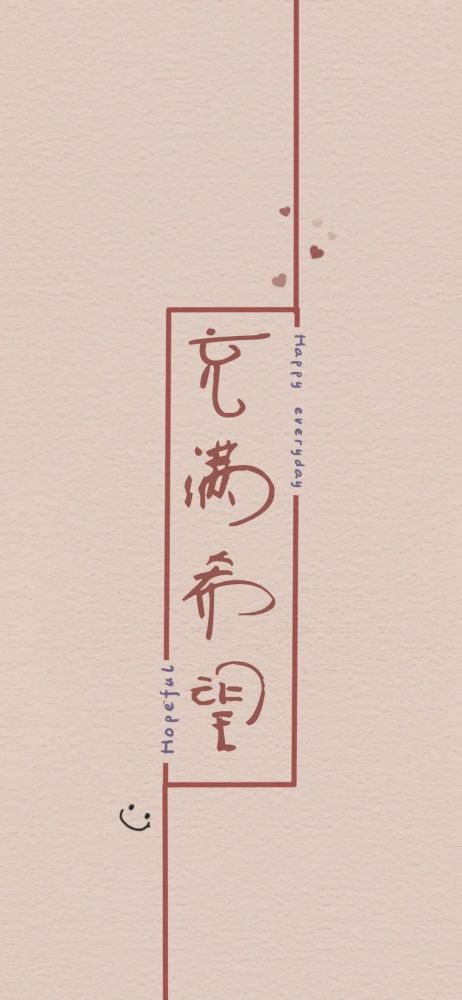 充满希望
Happy everyday
Hopeful